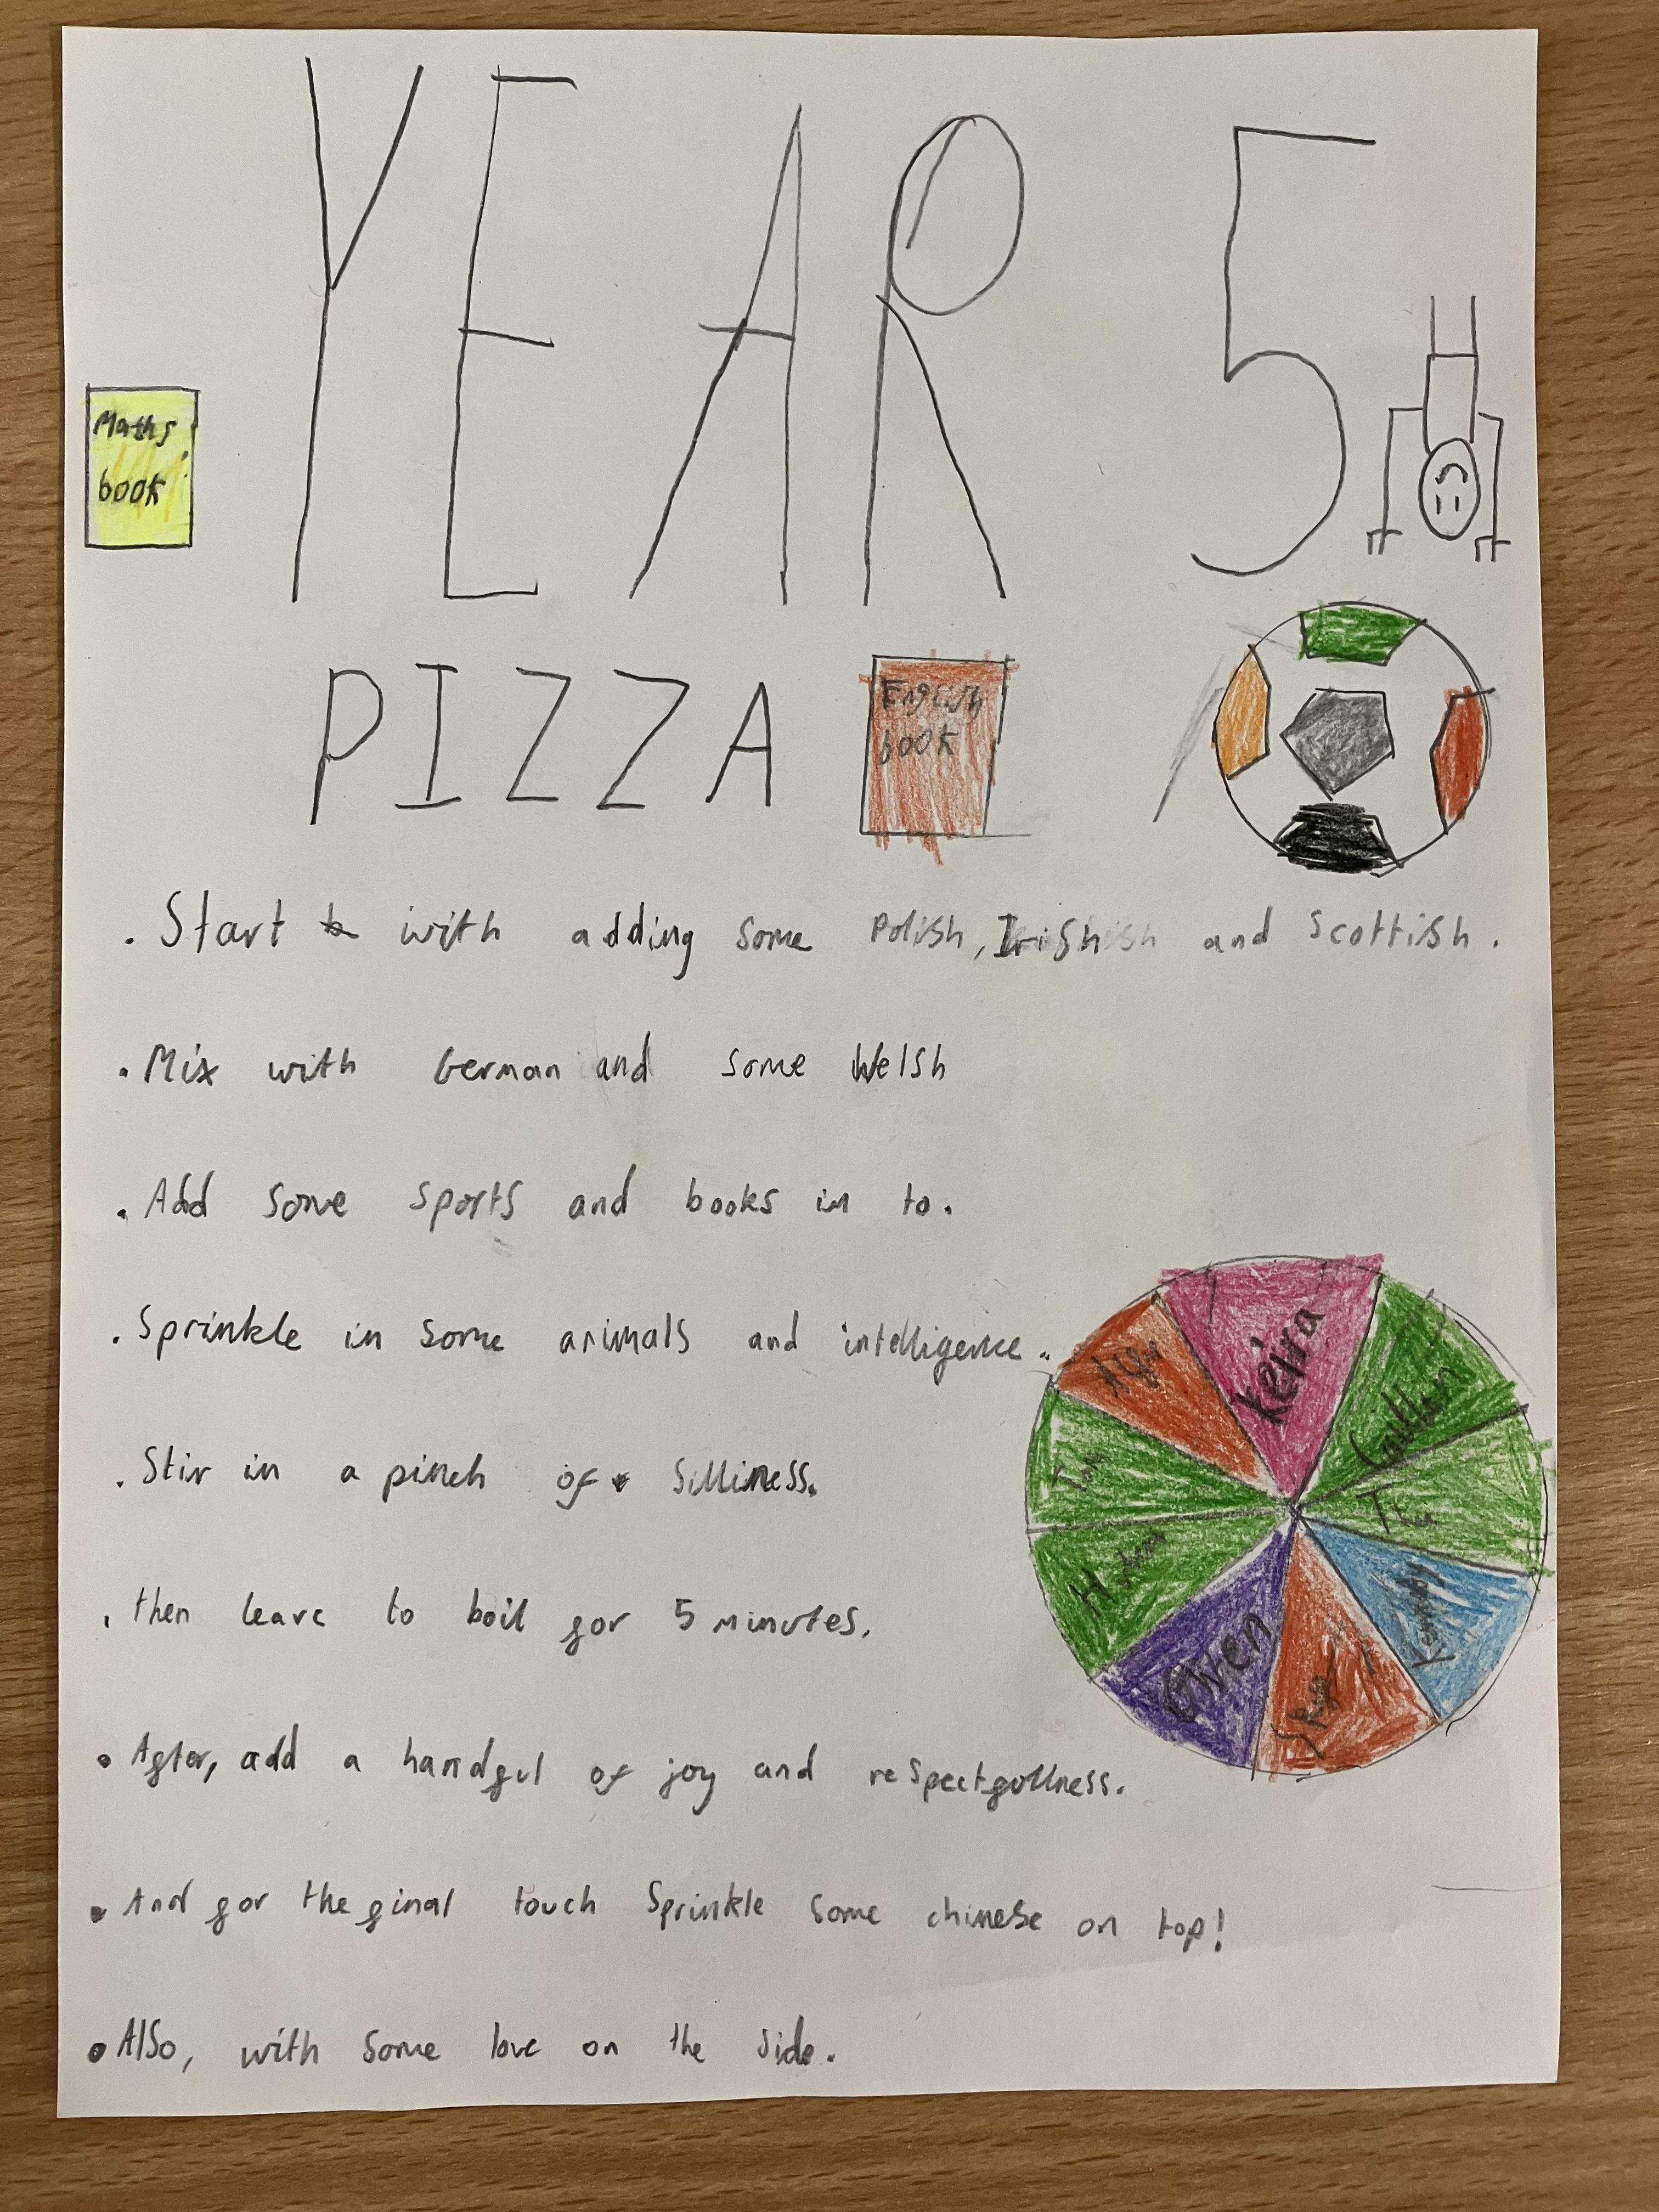 YEAR 5
Maths
book
PIZZA
English
book
. Start with adding some Polish, Irish and Scottish.
. Mix with German and some Welsh
. Add some sports and books in to.
. Sprinkle in some animals and intelligence.
. Stir in a pinch of silliness.
. then leave to boil for 5 minutes.
. After, add a handful of joy and respectfullness.
. And for the final touch sprinkle some chinese on top!
. Also, with some love on the side.
Keira
Owen